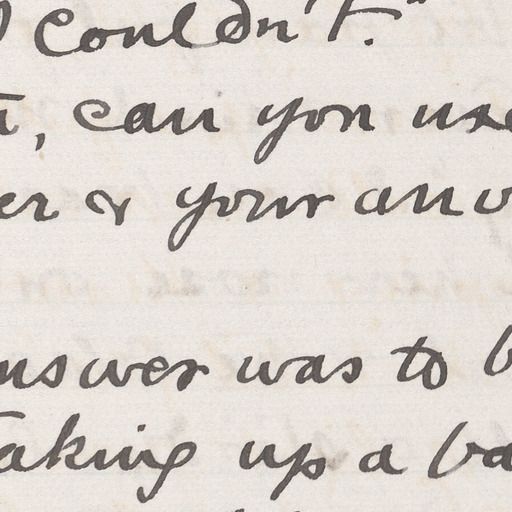 I couldn't."
, can you use
er & your anv
nswer was to b
aking up a ba